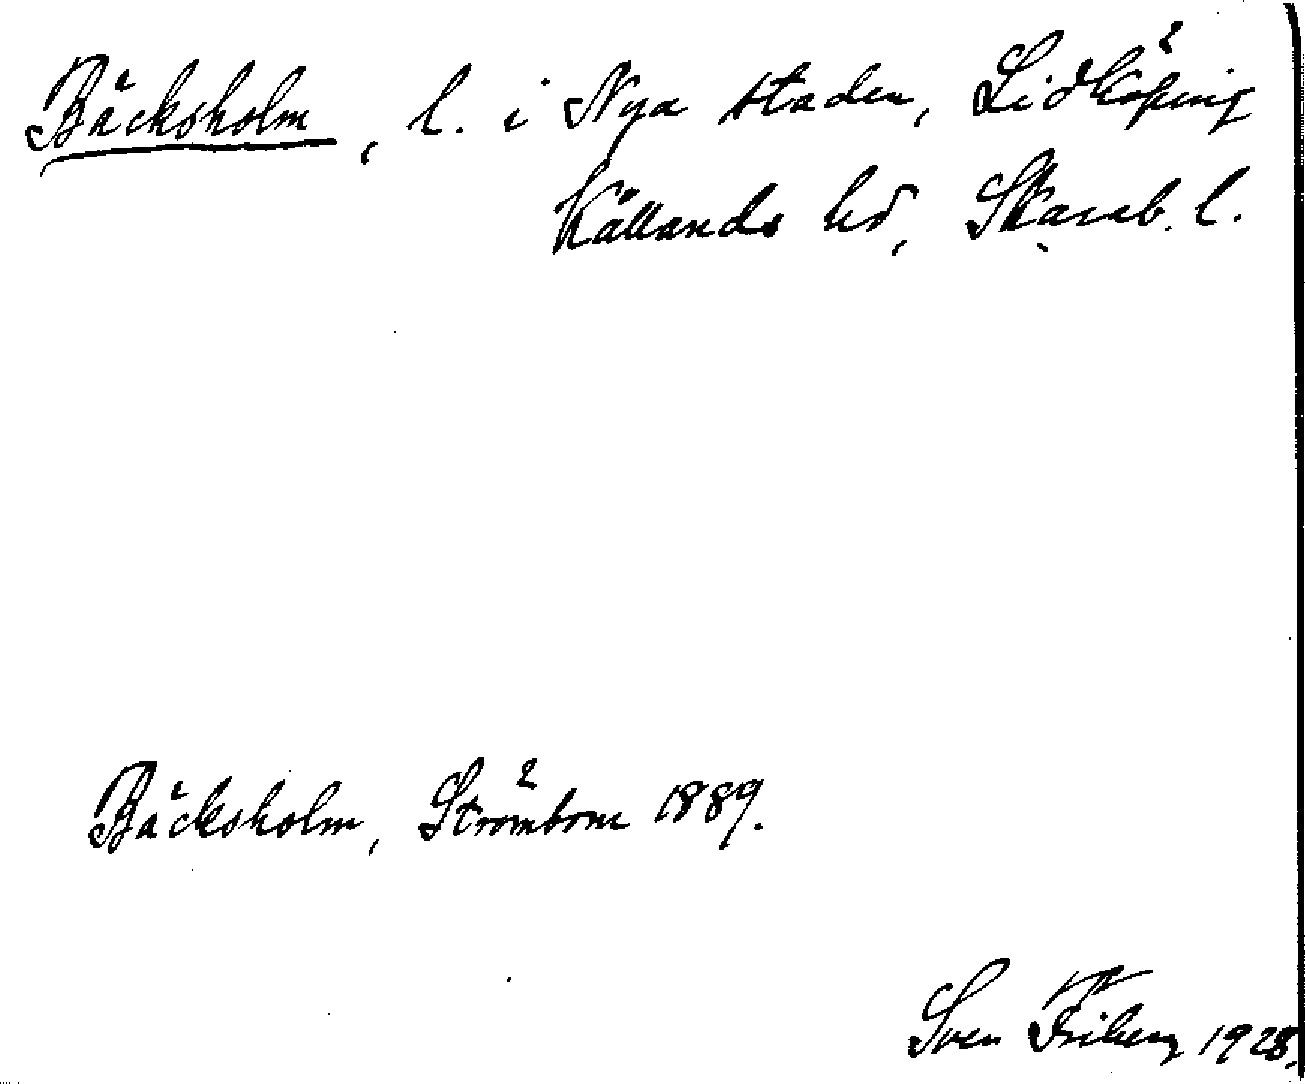 Bäcksholm, l. i Nya staden, Lidköping
Kållands hd, Skarab. l.
Bäcksholm, Strömbom 1889.
Sven Friberg 1928.